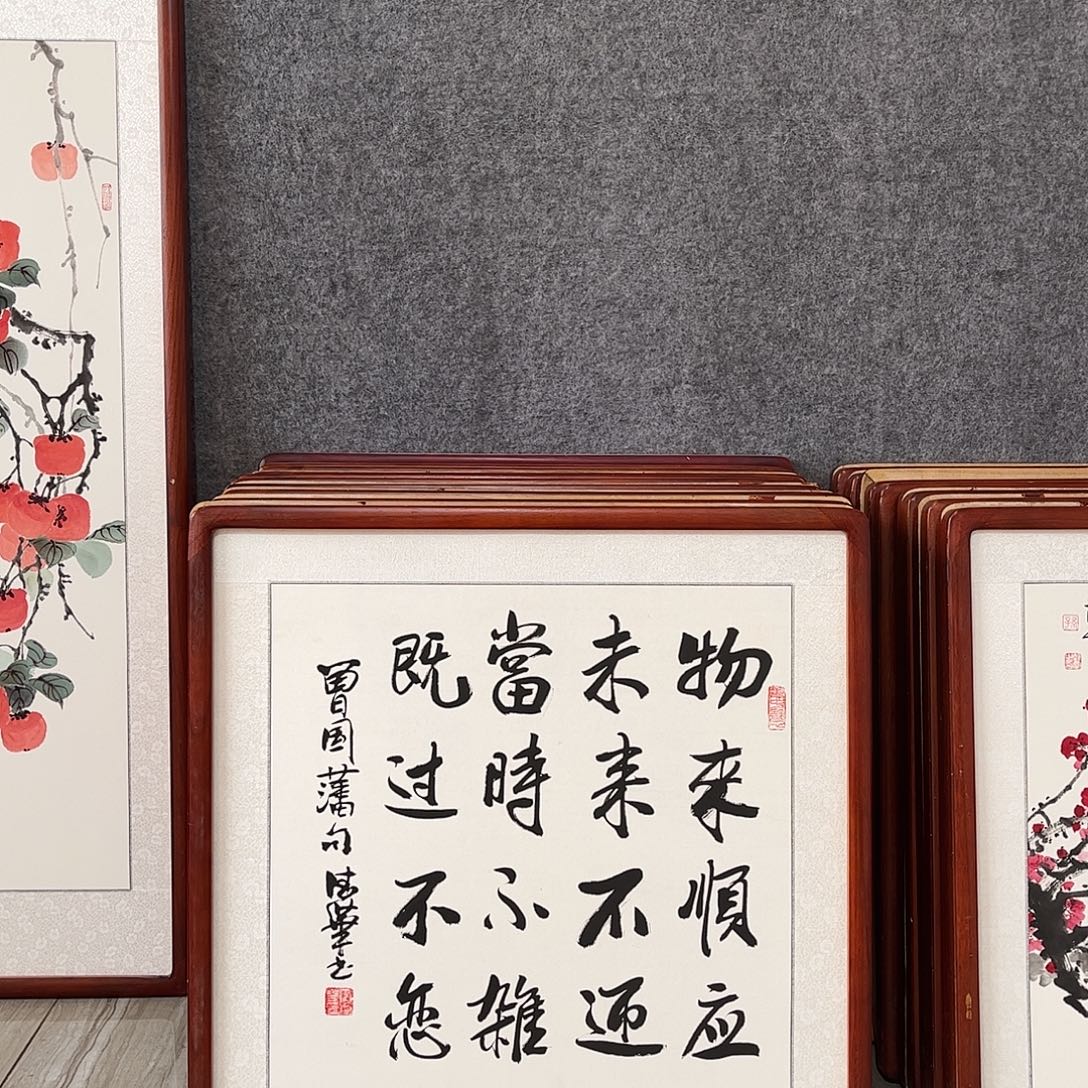 物來順应
未来不迎
當時不雜
既过不恋
曾国藩句